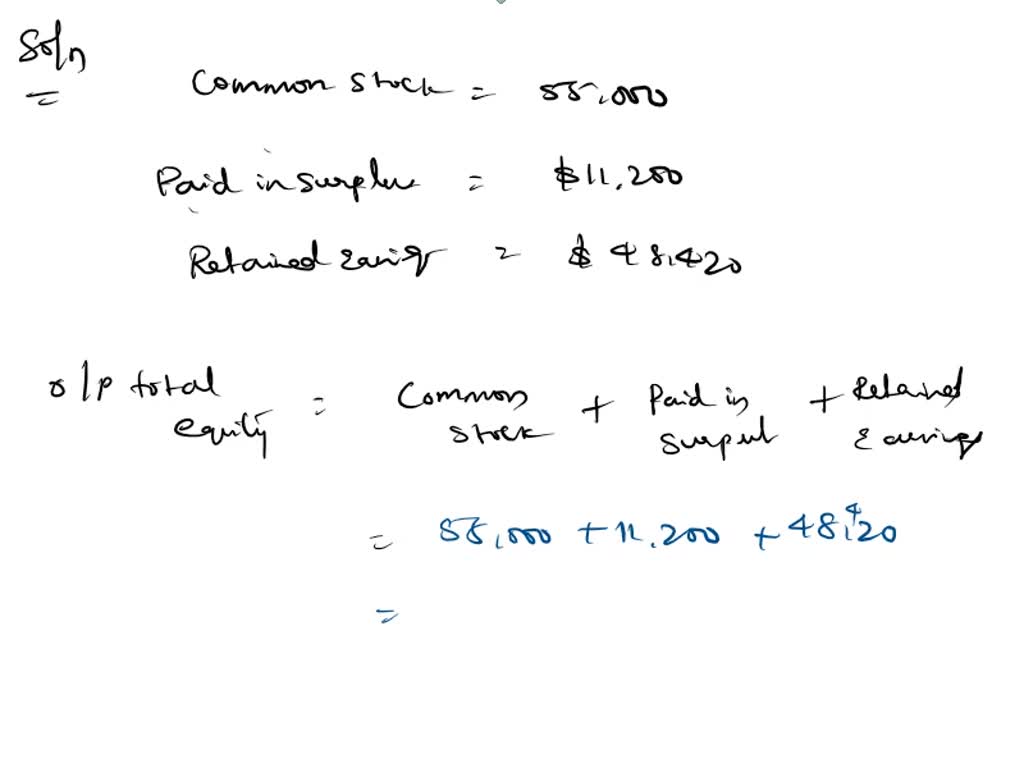 Soln
=
Common stock = 55,000
Paid in surplu = $11,200
Retained Earig = $48,420
o/p total equity = Common stock + Paid in surput + Retained Earings
= 55,000 + 11,200 + 48,420
=